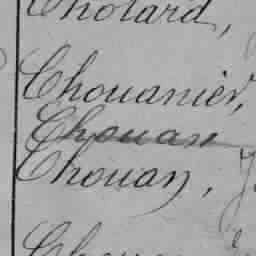 Cholard,
Chouanier,
Chouan
Chouan,